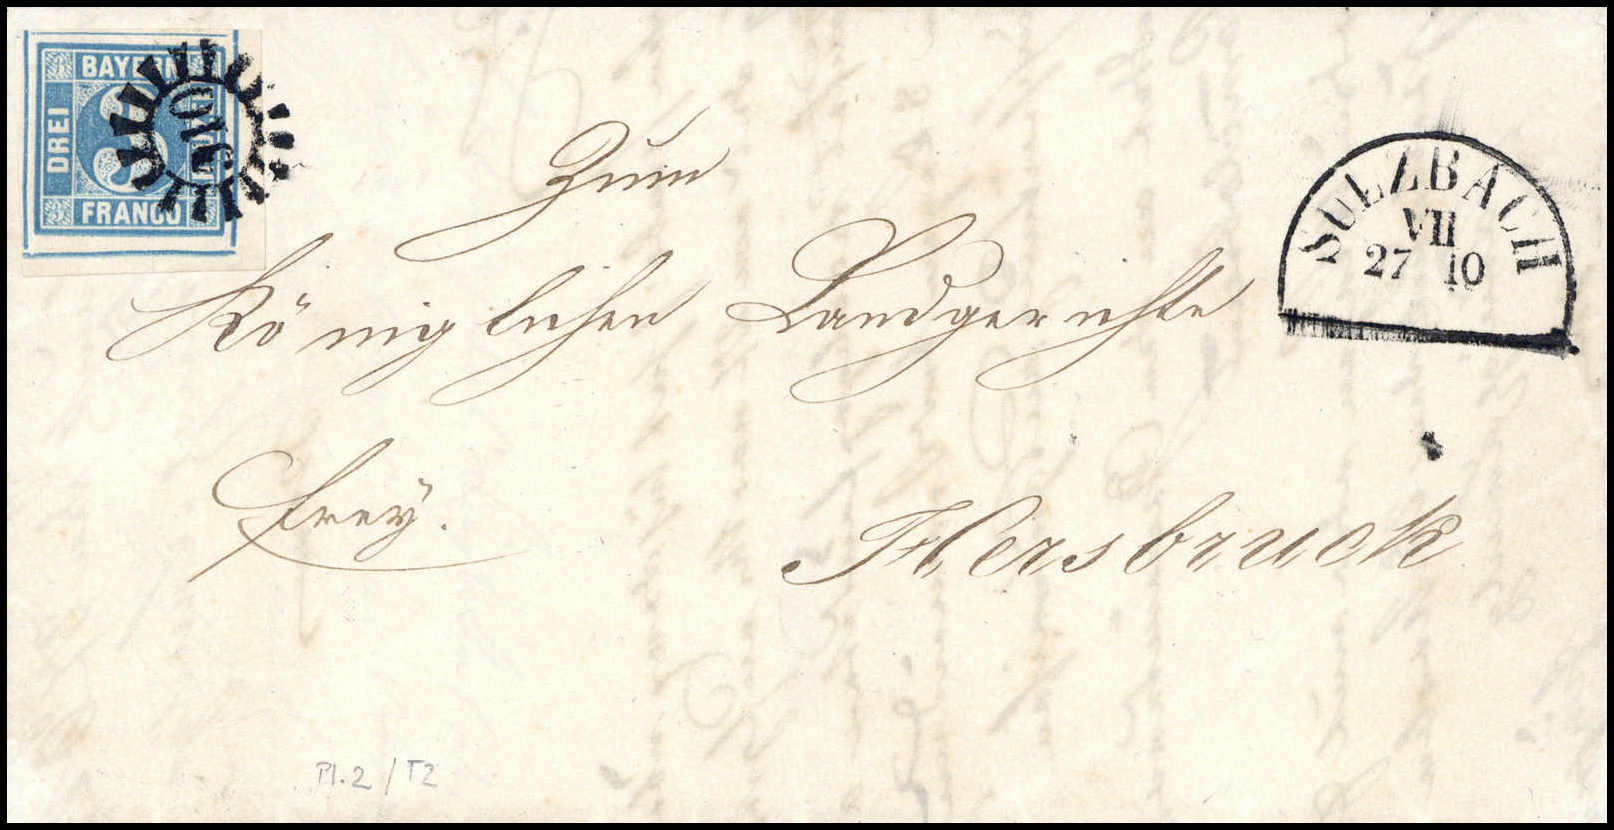 BAYERN
DREI
FRANCO
SULZBACH
VII
27 10
Zum
Königlichen Landgerichte
frey.
Hersbruck
Pl.2/T2